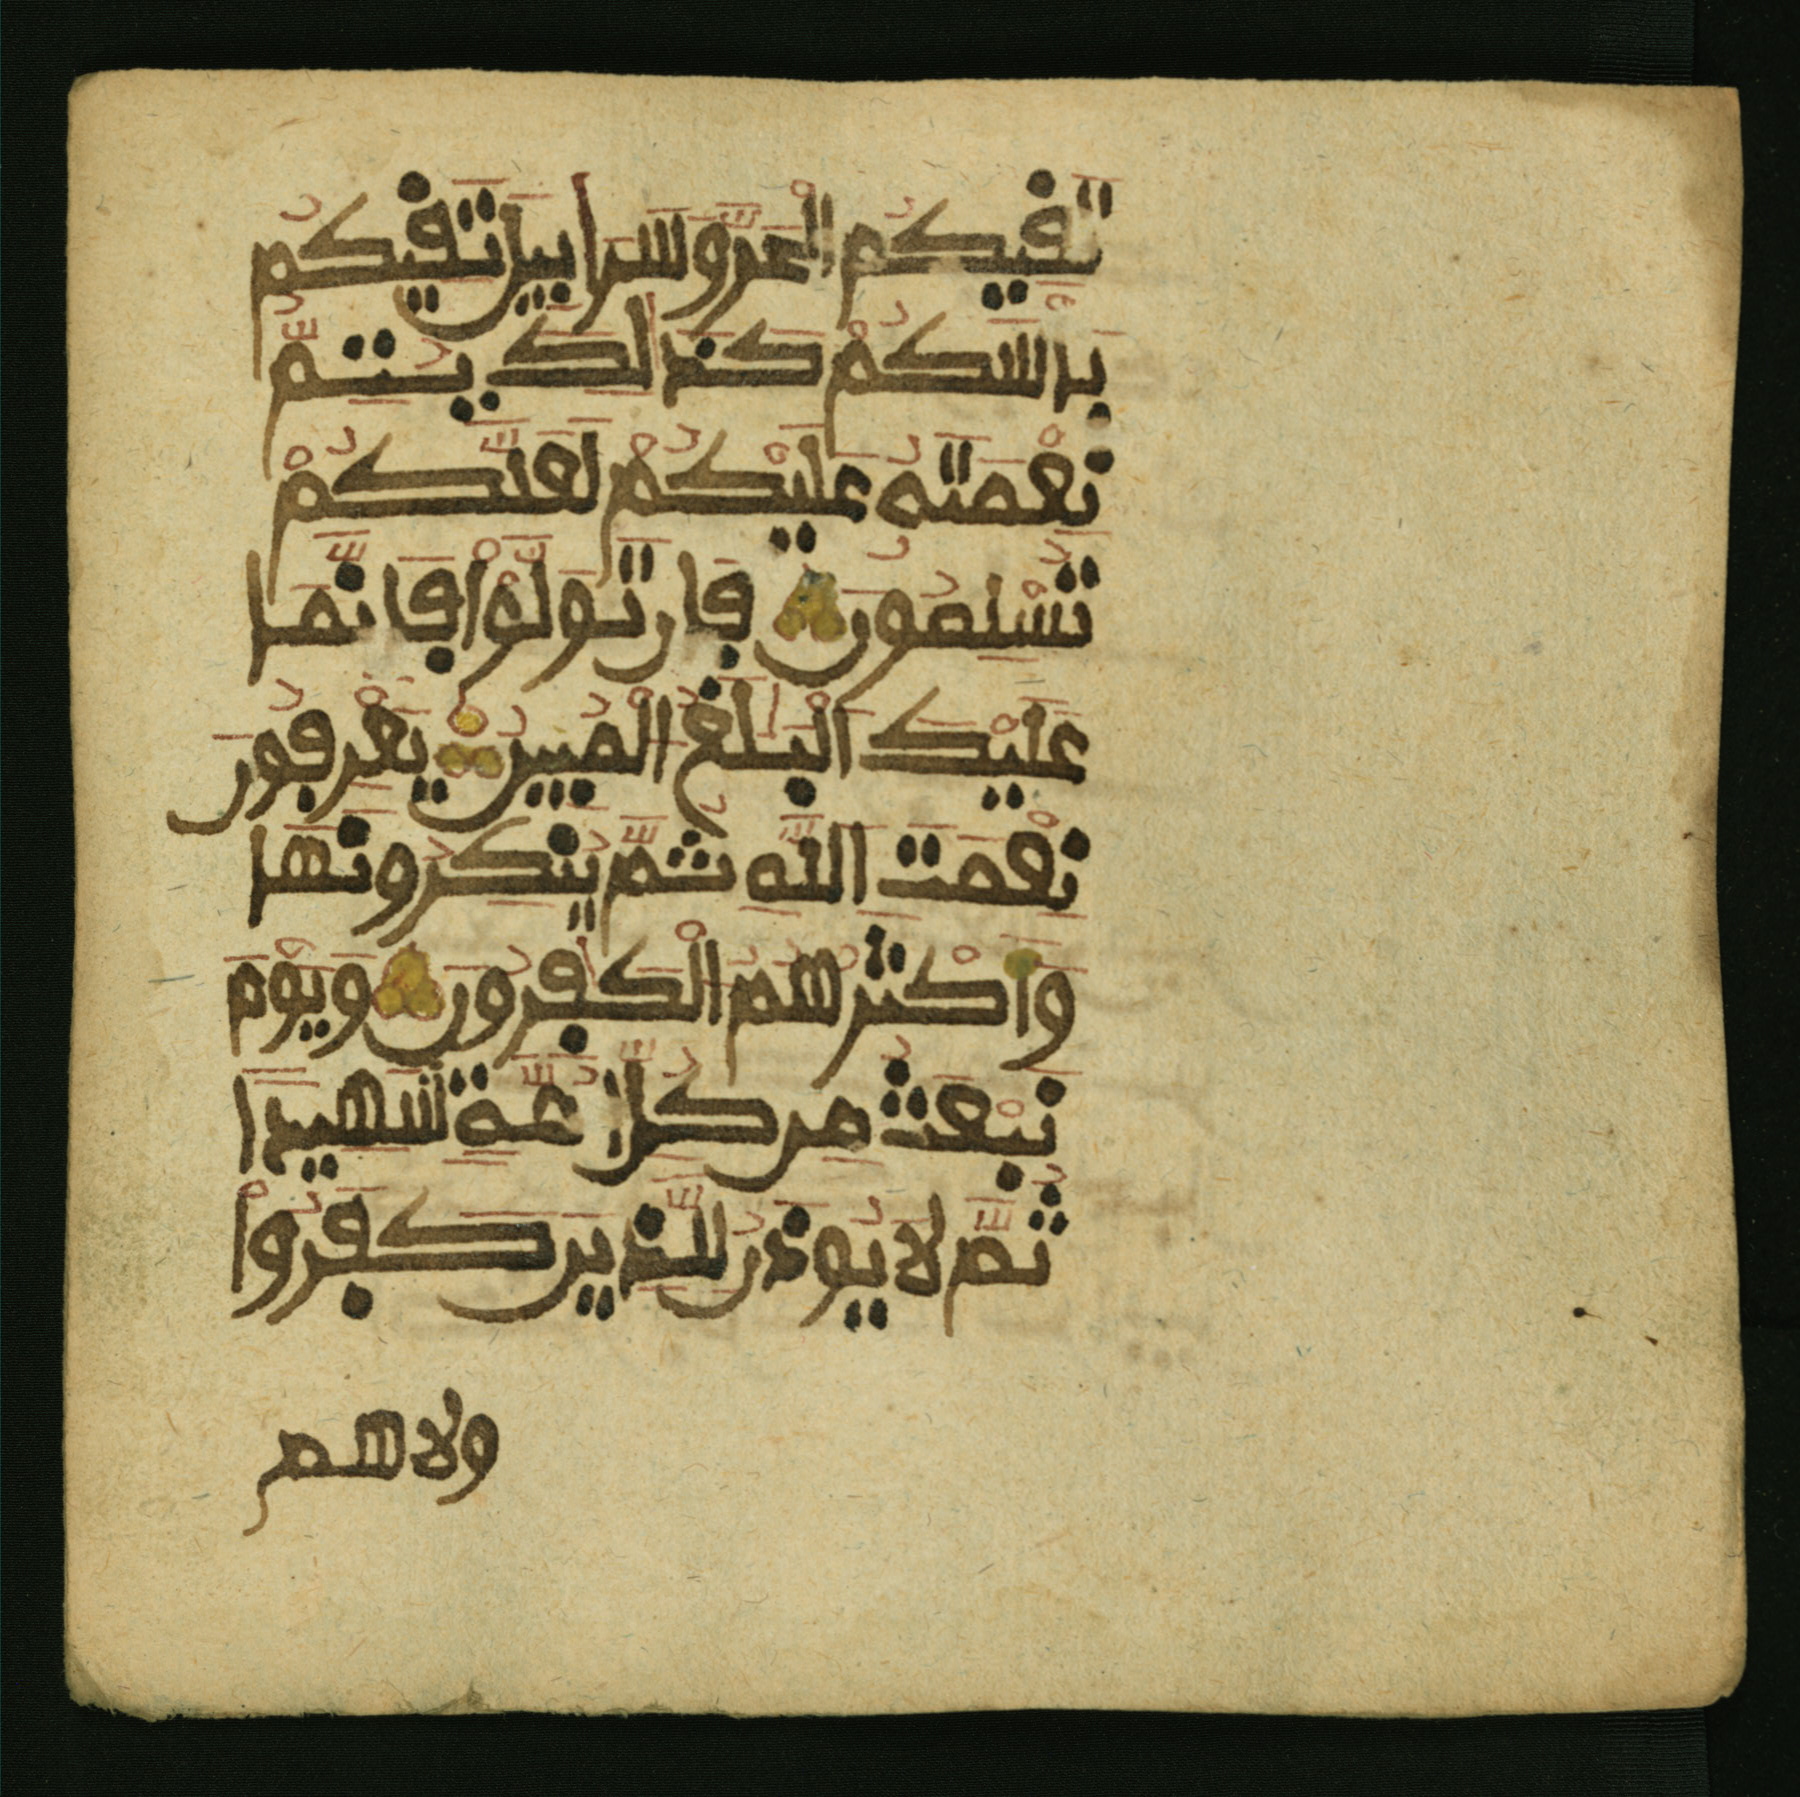 تَقِيكُمُ الْحَرَّ وَسَرَٰبِيلَ تَقِيكُم
بَأْسَكُمْ كَذَٰلِكَ يُتِمُّ
نِعْمَتَهُ عَلَيْكُمْ لَعَلَّكُمْ
تُسْلِمُونَ فَإِن تَوَلَّوْا فَإِنَّمَا
عَلَيْكَ الْبَلَٰغُ الْمُبِينُ يَعْرِفُونَ
نِعْمَتَ اللَّهِ ثُمَّ يُنكِرُونَهَا
وَأَكْثَرُهُمُ الْكَٰفِرُونَ وَيَوْمَ
نَبْعَثُ مِن كُلِّ أُمَّةٍ شَهِيدًا
ثُمَّ لَا يُوذَنُ لِلَّذِينَ كَفَرُوا
ولا هم